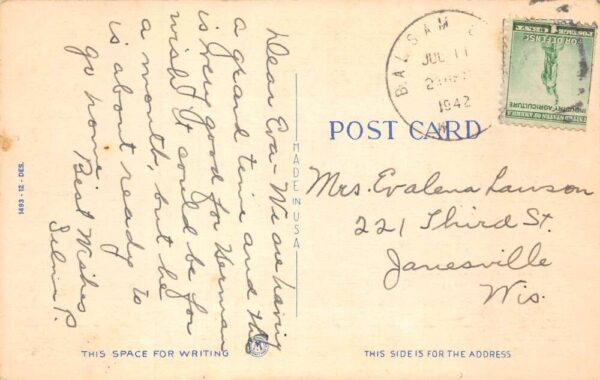 Dear Eva - We are having
a grand time and this
is very good for Herman
wish it could be for
a month, but he
is about ready to
go home.
Best Wishes
Selma P.
1493-12-DES.
MADE IN USA
THIS SPACE FOR WRITING
BALSAM
JUL 11
1942
UNITED STATES OF AMERICA
INDUSTRY AGRICULTURE
FOR DEFENSE
POST CARD
Mrs. Evalena Lawson
221 Third St.
Janesville
Wis.
THIS SIDE IS FOR THE ADDRESS